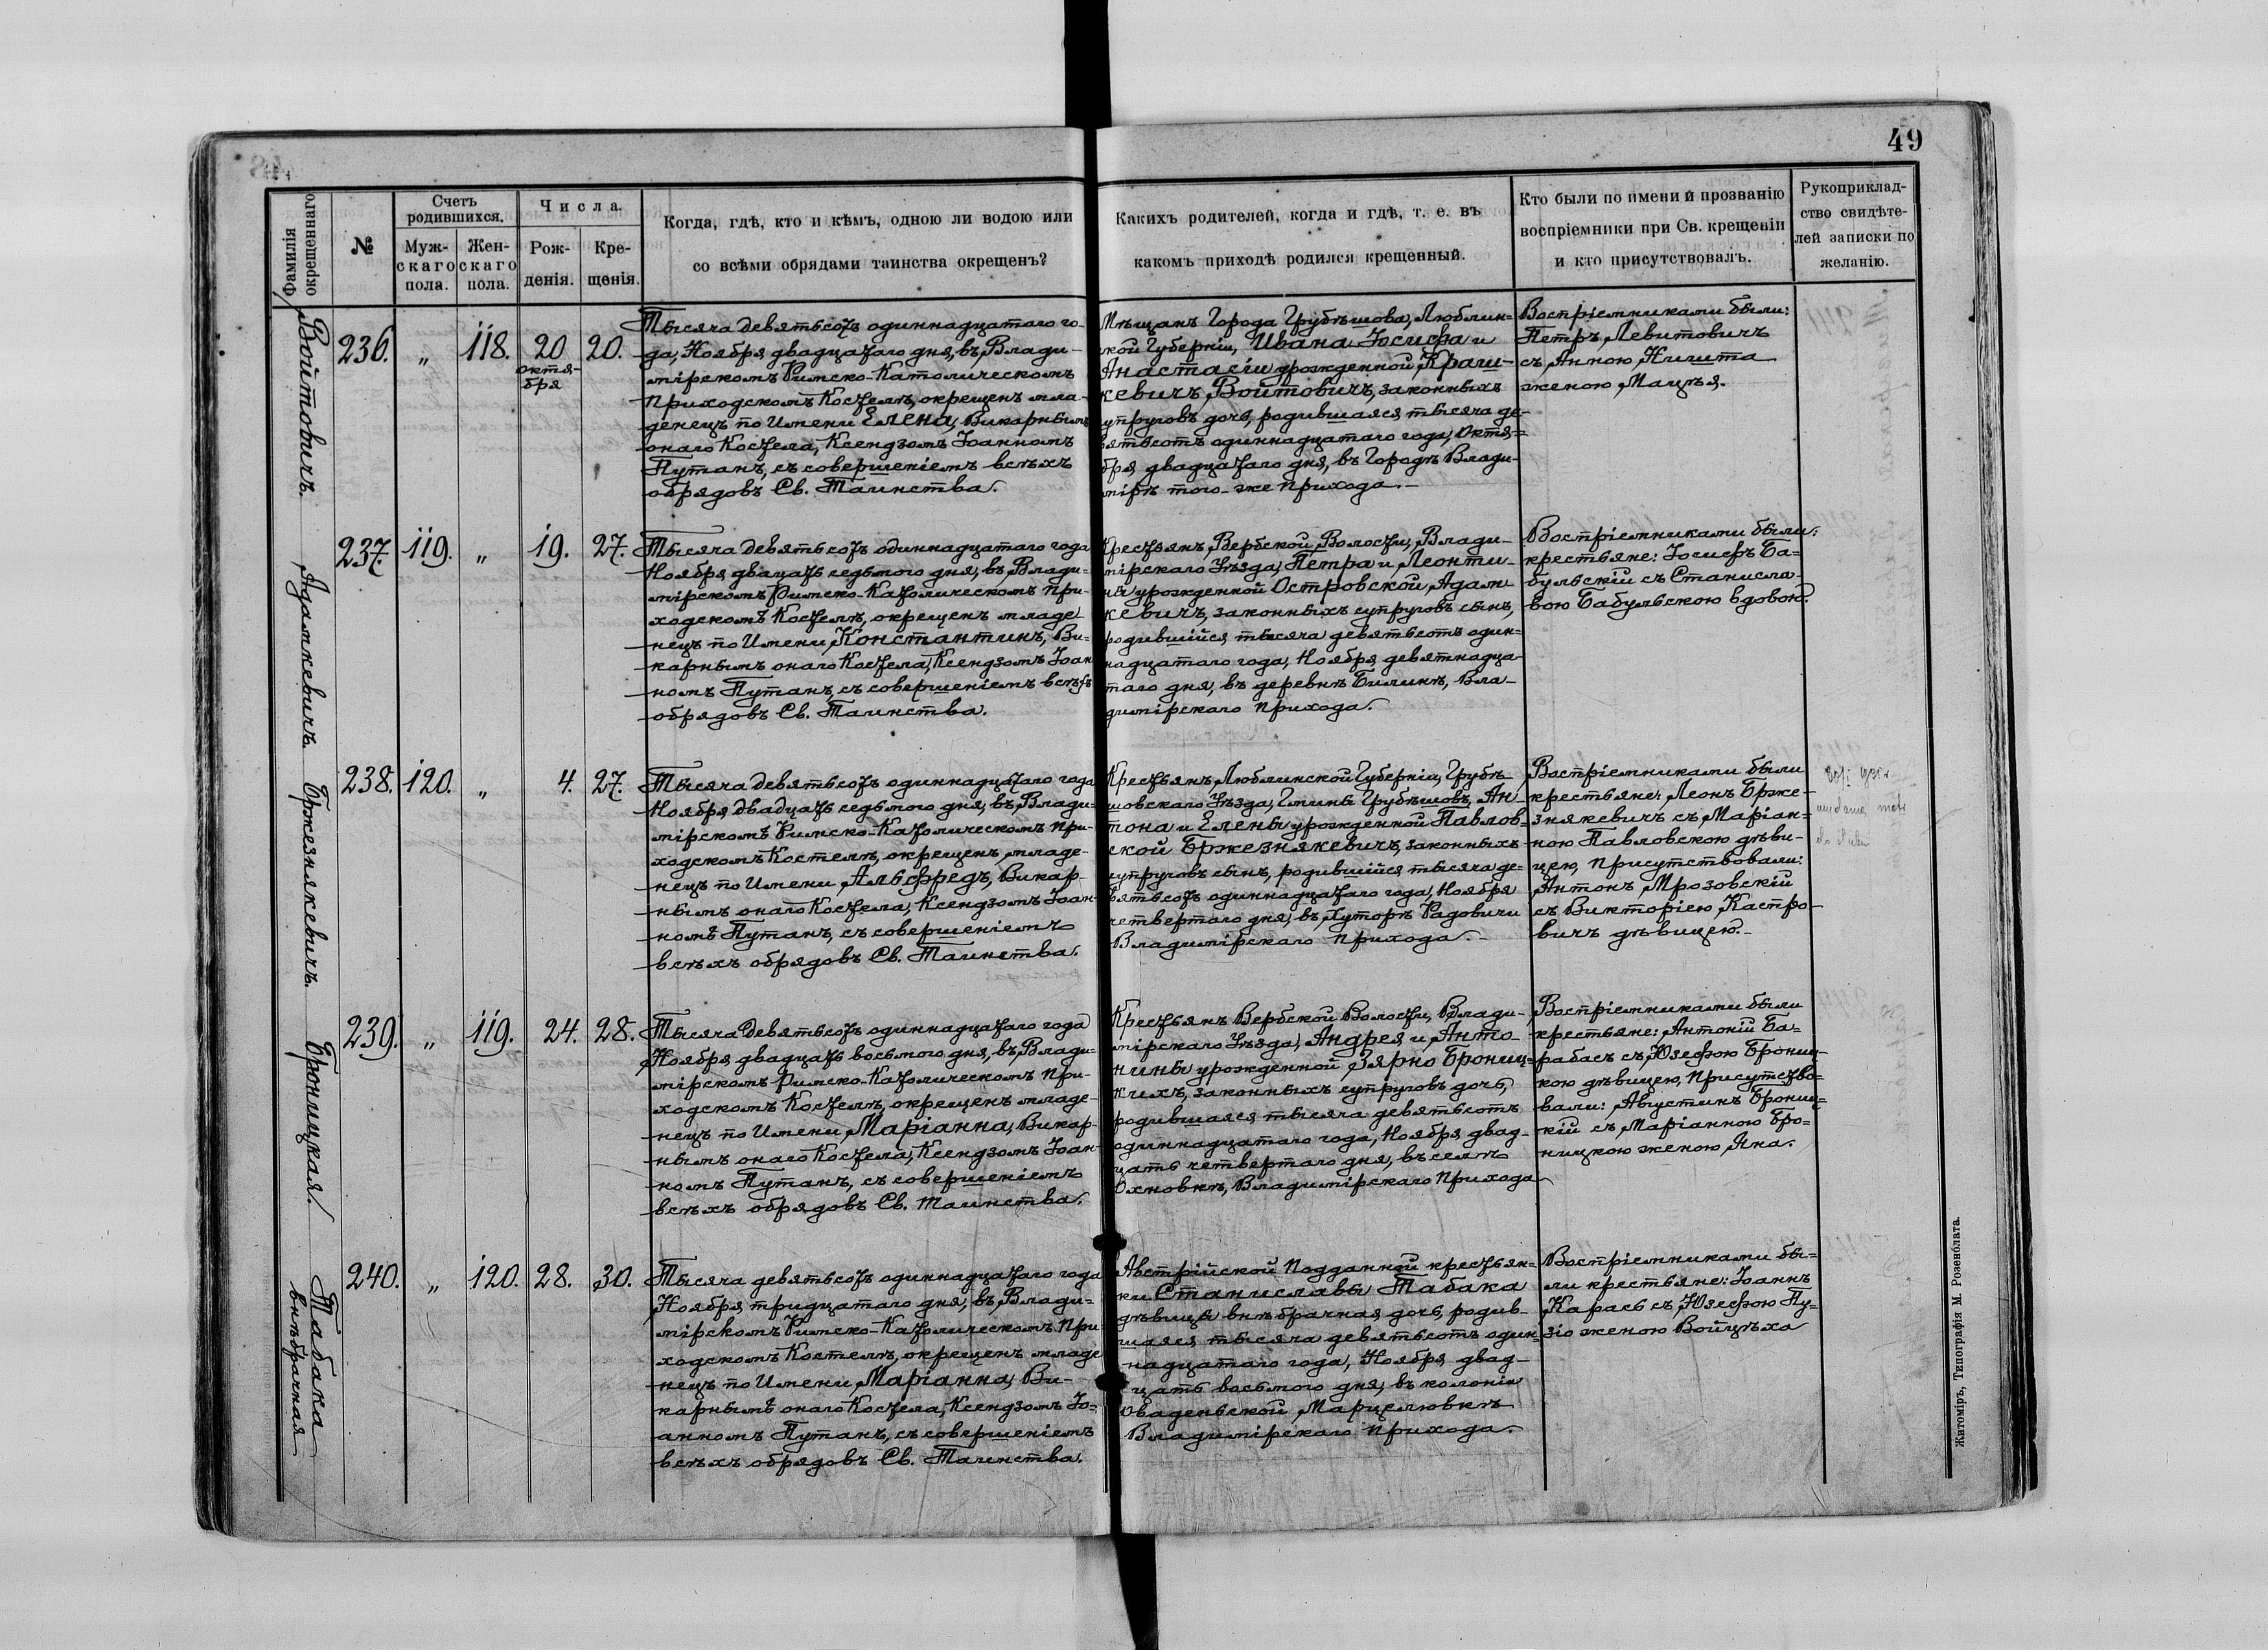 49
Фамилія
окрещеннаго
№
Счетъ
родившихся.
Муж-
скаго
пола.
Жен-
скаго
пола.
Числа.
Рож-
денія.
Кре-
щенія.
Когда, гдѣ, кто и кѣмъ, одною ли водою или
со всѣми обрядами таинства окрещенъ?
Какихъ родителей, когда и гдѣ, т. е. въ
какомъ приходѣ родился крещенный.
Кто были по имени и прозванію
воспріемники при Св. крещеніи
и кто присутствовалъ.
Рукоприклад-
ство свидѣте-
лей записки по
желанію.
Войтовичъ.
236. „ 118. 20 20.
октя-
бря
Тысяча девятьсотъ одиннадцатаго го-
да, Ноября двадцатаго дня, въ Влади-
мірскомъ Римско-Католическомъ
Приходскомъ Костелѣ, окрещенъ мла-
денецъ по Имени Елена, Викарнымъ
онаго Костела, Ксендзомъ Іоанномъ
Путанъ, съ совершеніемъ всѣхъ
обрядовъ Св. Таинства.
Мѣщанъ Города Грубѣшова, Люблин-
ской Губерніи, Ивана Іосифа и
Анастасіи урожденной Краш-
кевичъ Войтовичъ, законныхъ
супруговъ дочь, родившаяся тысяча де-
вятьсотъ одиннадцатаго года, Октя-
бря двадцатаго дня, въ Городѣ Влади-
мірѣ того-же Прихода.-
Воспріемниками были:
Петръ Левитовичъ
съ Анною Ништа
женою Мацѣя.
Адамкевичъ.
237. 119. „ 19. 27.
Тысяча девятьсотъ одиннадцатаго года
Ноября двацать седьмого дня, въ Влади-
мірскомъ Римско-Католическомъ При-
ходскомъ Костелѣ, окрещенъ младе-
нецъ по Имени Константинъ, Ви-
карнымъ онаго Костела, Ксендзомъ Іоан
номъ Путанъ, съ совершеніемъ всѣхъ
обрядовъ Св. Таинства.
Крестьянъ Вербской Волости, Влади-
мірскаго Уѣзда, Петра и Леонти-
ны урожденной Островской Адам-
кевичъ, законныхъ супруговъ сынъ,
родившійся тысяча девятьсотъ один-
надцатаго года, Ноября девятнадца-
таго дня, въ деревнѣ Билинѣ, Вла-
димірскаго Прихода.
Воспріемниками были:
крестьяне: Іосифъ Ба-
бульскій съ Станисла-
вою Бабульскою вдовою.
Бржезнякевичъ.
238. 120. „ 4. 27.
Тысяча девятьсотъ одиннадцатаго года
Ноября двадцать седьмого дня, въ Влади-
мірскомъ Римско-Католическомъ При-
ходскомъ Костелѣ, окрещенъ младе-
нецъ по Имени Альфредъ, Викар-
нымъ онаго Костела, Ксендзомъ Іоан-
номъ Путанъ, съ совершеніемъ
всѣхъ обрядовъ Св. Таинства.
Крестьянъ Люблинской Губерніи, Грубѣ-
шовскаго Уѣзда, Гмины Грубѣшовъ, Ан-
тона и Елены урожденной Павлов-
ской Бржезнякевичъ, законныхъ
супруговъ сынъ, родившійся тысяча де-
вятьсотъ одиннадцатаго года, Ноября
четвертаго дня, въ Хуторѣ Радовичи
Владимірскаго Прихода.-
Воспріемниками были
крестьяне: Леонъ Брже-
знякевичъ съ Маріан-
ною Павловскою дѣви-
цею, Присутствовали:
Антонъ Мрозовскій
съ Викторіею Кастро-
вичъ дѣвицею.-
Броницкая
239. „ 119. 24. 28.
Тысяча девятьсотъ одиннадцатаго года
Ноября двадцать восьмого дня, въ Влади-
мірскомъ Римско-Католическомъ При-
ходскомъ Костелѣ, окрещенъ младе-
нецъ по Имени Маріанна, Викар-
нымъ онаго Костела, Ксендзомъ Іоан-
номъ Путанъ, съ совершеніемъ
всѣхъ обрядовъ Св. Таинства.
Крестьянъ Вербской Волости, Влади-
мірскаго Уѣзда, Андрея и Анто-
нины урожденной Зярно Брониц-
кихъ, законныхъ супруговъ дочь,
родившаяся тысяча девятьсотъ
одиннадцатаго года, Ноября двад-
цать четвертаго дня, въ селѣ
Охновкѣ, Владимірскаго Прихода
Воспріемниками были
крестьяне: Антоній Ба-
рабасъ съ Юзефою Брониц-
кою дѣвицею, Присутство-
вали: Августинъ Брониц-
кій съ Маріанною Бро-
ницкою женою Яна.
Табака
внѣбрачная
240. „ 120. 28. 30.
Тысяча девятьсотъ одиннадцатаго года
Ноября тридцатаго дня, въ Влади-
мірскомъ Римско-Католическомъ При
ходскомъ Костелѣ, окрещенъ младе
нецъ по Имени Маріанна, Ви-
карнымъ онаго Костела, Ксендзомъ Іо-
анномъ Путанъ, съ совершеніемъ
всѣхъ обрядовъ Св. Таинства.
Австрійской Подданной крестьян-
ки Станиславы Табака
дѣвицы внѣбрачная дочь, родив-
шаяся тысяча девятьсотъ один-
надцатаго года, Ноября двад-
цать восьмого дня, въ колоніи
Оваденьской Марцелювкѣ
Владимірскаго Прихода.
Воспріемниками бы-
ли крестьяне: Іоаннъ
Карась съ Юзефою Пу-
зіо женою Войцѣха
Житоміръ, Типографія М. Розенблата.